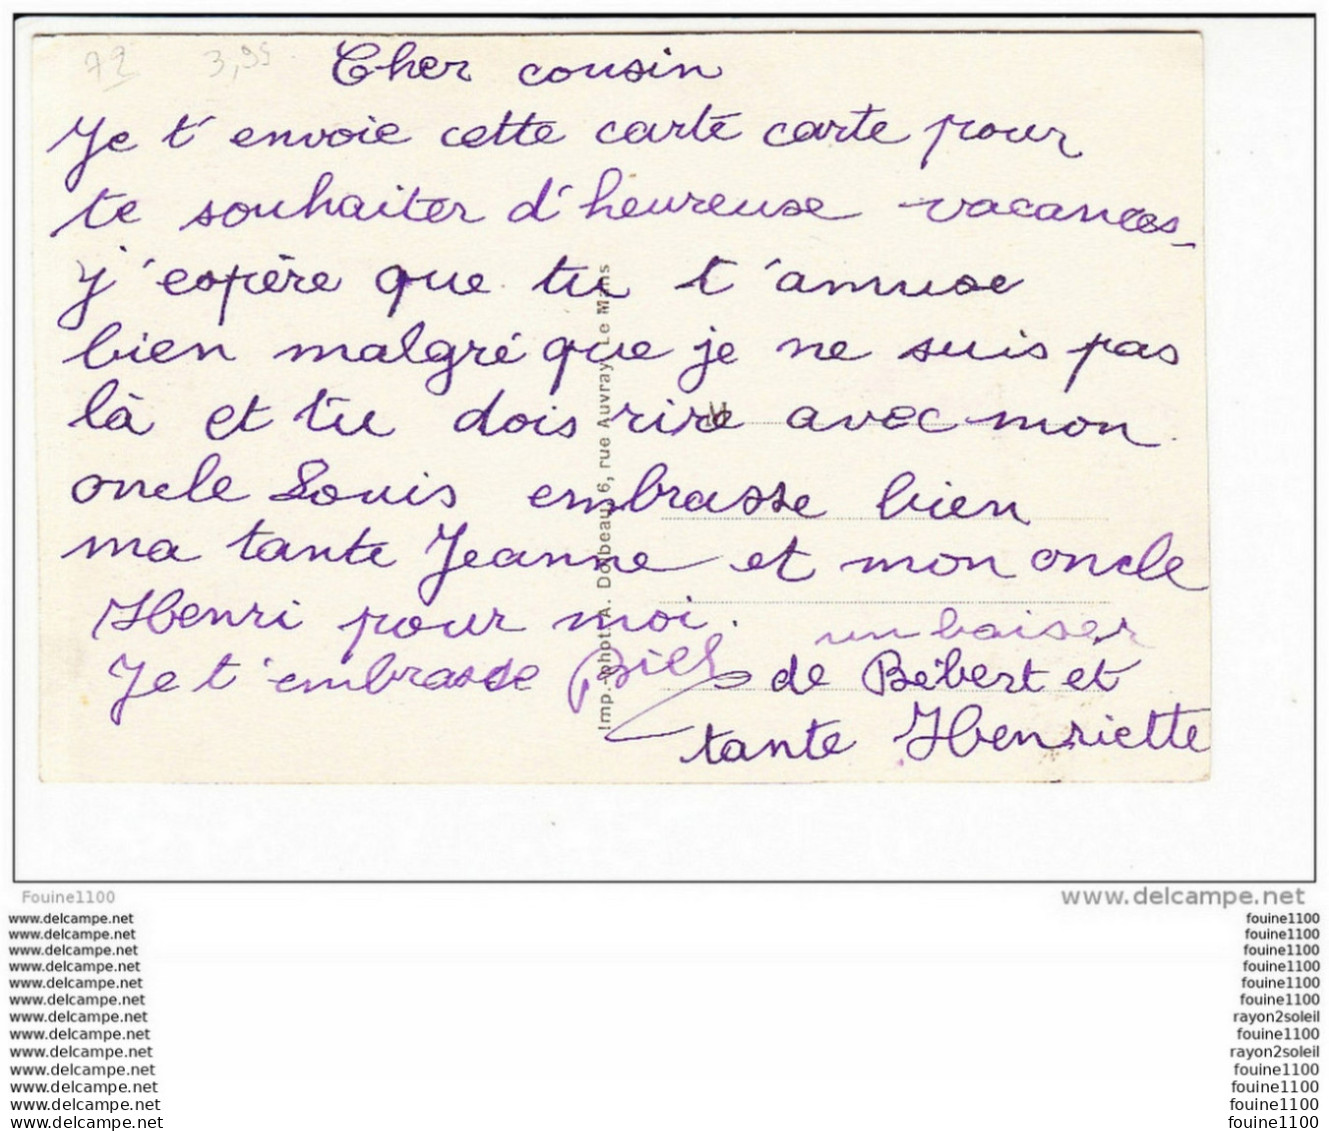 72 3,95
Cher cousin
Je t'envoie cette carte carte pour
te souhaiter d'heureuse vacances
j'espère que tu t'amuse
bien malgré que je ne suis pas
là et tu dois rire avec mon
oncle Louis embrasse bien
ma tante Jeanne et mon oncle
Henri pour moi.
Je t'embrasse
un baiser
de Bébert et
tante Henriette
Imp.-phot. A. Dolbeau, 6, rue Auvray, Le Mans
Fouine1100
www.delcampe.net
www.delcampe.net
www.delcampe.net
www.delcampe.net
www.delcampe.net
www.delcampe.net
www.delcampe.net
www.delcampe.net
www.delcampe.net
www.delcampe.net
www.delcampe.net
www.delcampe.net
www.delcampe.net
www.delcampe.net
fouine1100
fouine1100
fouine1100
fouine1100
fouine1100
fouine1100
rayon2soleil
fouine1100
rayon2soleil
fouine1100
fouine1100
fouine1100
fouine1100